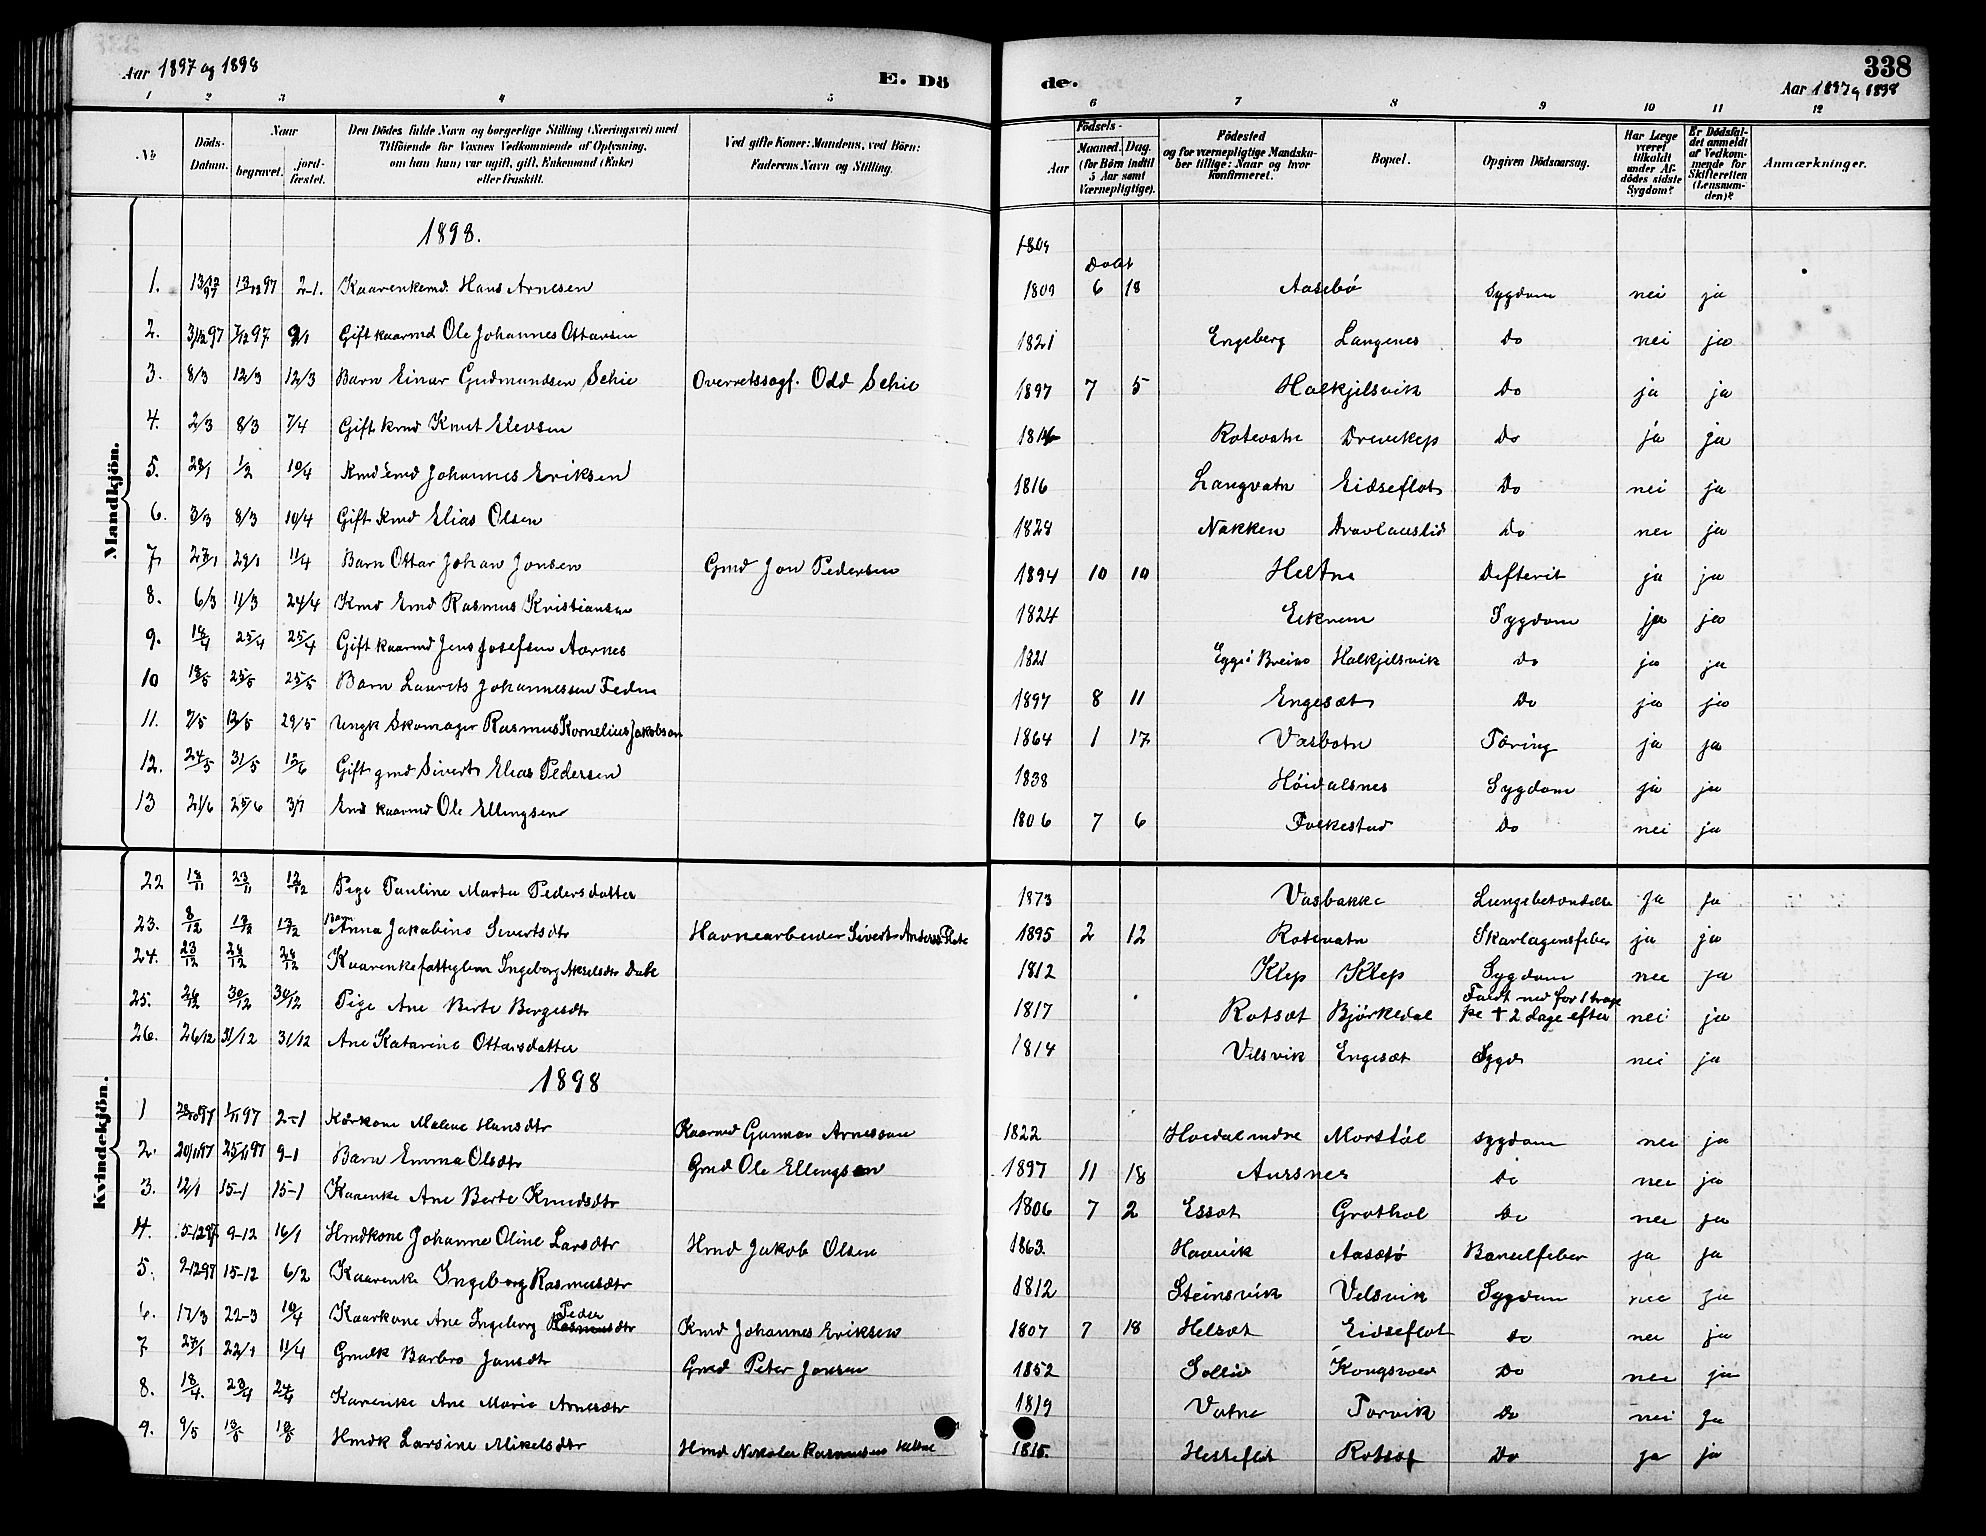 Aar 1897 og 1898
E. Dö
de.
338
Aar 1897 og 1898
1 2 3 4 5 6 7 8 9 10 11 12
No.
Döds-Datum.
Naar
begravet.
jord-fæstet.
Den Dödes fulde Navn og borgerlige Stilling (Næringsvei) med
Tilföiende for Voxnes Vedkommende af Oplysning,
om han (hun) var ugift, gift, Enkemand (Enke)
eller fraskilt.
Ved gifte Koner: Mandens, ved Börn:
Faderens Navn og Stilling.
Födsels-
Aar
Maaned. Dag.
(for Börn indtil
5 Aar samt
Værnepligtige).
Födested
og for værnepligtige Mandska-
ber tillige: Naar og hvor
konfirmeret.
Bopæl.
Opgiven Dödsaarsag.
Har Læge
været
tilkaldt
under Af-
dödes sidste
Sygdom?
Er Dödsfal-
det anmeldt
af Vedkom-
mende for
Skifteretten
(Lensman-
den)?
Anmærkninger.
Mandkjön.
1898.
1809
Dobt
1. 13/12 97 13/12 97 2-1. Kaarenkemd. Hans Arnesen 1809 6 18 Aasebø Sygdom nei ja
2. 3/12 97 7/12 97 9/1 Gift kaarmd Ole Johannes Ottarsen 1821 Engeberg Langenes Do nei ja
3. 8/3 12/3 12/3 Barn Einar Gudmundsen Schie Overretssagf. Odd Schie 1897 7 5 Halkjelsvik Do ja ja
4. 2/3 8/3 7/4 Gift kmd Knut Elevsen Rotevatn Do ja ja
5. 28/1 1/2 10/4 Kmd Emd Johannes Eriksen 1816 Langvatn Eidseflot Do nei ja
6. 3/3 8/3 10/4 Gift Kmd Elias Olsen 1828 Nakken Dravlauslid Do nei ja
7. 23/1 29/1 11/4 Barn Ottar Johan Jonsen Gmd Jon Pedersen 1894 10 10 Heltne Defterit ja ja
8. 6/3 11/3 24/4 Kmd Emd Rasmus Kristiansen 1824 Eiknem Sygdom ja ja
9. 18/4 25/4 25/4 Gift kaarmd Jens Josefsen Aarnes 1821 Egge i Breim Halkjelsvik do ja ja
10 18/5 25/5 25/5 Barn Laurits Johannessen 1897 8 11 Engesæt Do ja ja
11. 7/5 12/5 29/5 Ungk Skomager Rasmus Kornelius Jakobsen 1864 1 17 Vasbotn Tæring ja ja
12. 24/5 31/5 15/6 Gift gmd Sivert Elias Pedersen 1838 Høidalsnes Sygdom ja ja
13 21/6 25/6 3/7 Emd kaarmd Ole Ellingsen 1806 7 6 Folkestad Do nei ja
Kvindekjön.
22 18/11 23/11 12/12 Pige Pauline Marta Pedersdatter 1873 Vasbakke Lungebetændelse ja ja
23. 8/12 13/12 13/12 Barn Anna Jakobine Sivertsdtr Havnearbeider Sivert Anders. Flote 1895 2 12 Rotevatn Skarlagensfeber ja ja
24. 23/12 28/12 28/12 Kaarenkefattiglem Ingeborg Akselsdtr Dale 1812 Klep Klep Sygdom nei ja
25. 26/12 30/12 30/12 Pige Ane Berte Borgesdtr 1817 Rotsæt Bjørkedal Faldt ned for 1 trap
pe + 2 dage efter nei ja
26. 26/12 31/12 31/12 Ane Katarine Ottarsdatter 1814 Velsvik Engesæt Sygd nei ja
1898
1 28/10 97 1/11 97 2-1 Kårkone Malene Hansdtr Kaarmd Gunnar Arnessen 1822 Høidal indre Morstøl sygdom nei ja
2. 20/11 97 25/11 97 9-1 Barn Emma Olsdtr Gmd Ole Ellingsen 1897 11 18 Aursnes do nei ja
3. 12/1 15-1 15-1 Karenke Ane Berte Knudsdtr 1806 7 2 Essæt Grothol Do nei ja
4. 5-12 97. 9-12 16/1 Hmdkone Johanne Oline Larsdtr Hmd Jakob Olsen 1863. Haavik Aasebø Barselfeber ja ja
5. 9-12 97 15-12 6/2 Kaarenke Ingeborg Rasmusdtr 1812 Steinsvik Velsvik Sygdom nei ja
6. 17/3 22-3 10/4 Kaarkone Ane Ingeborg Peder Rasmusdtr Kmd Johannes Eriksen 1807 7 18 Helsæt Eidseflot do nei ja
7. 23/1 22/1 11/4 Gmdk Barbro Jansdtr Gmd Peter Jonsen 1852 Sollid Kongsvold Do nei ja
8. 18/4. 23/4 24/4 Karenke Ane Marie Arnesdtr 1819 Vatne Torvik Do nei ja
9. 9/5 13/5 18/5 Hmdk Larsine Mikelsdtr Hmd Nikolai Rasmussen Heltne 1815. Hesteflot Rotset Do ja ja